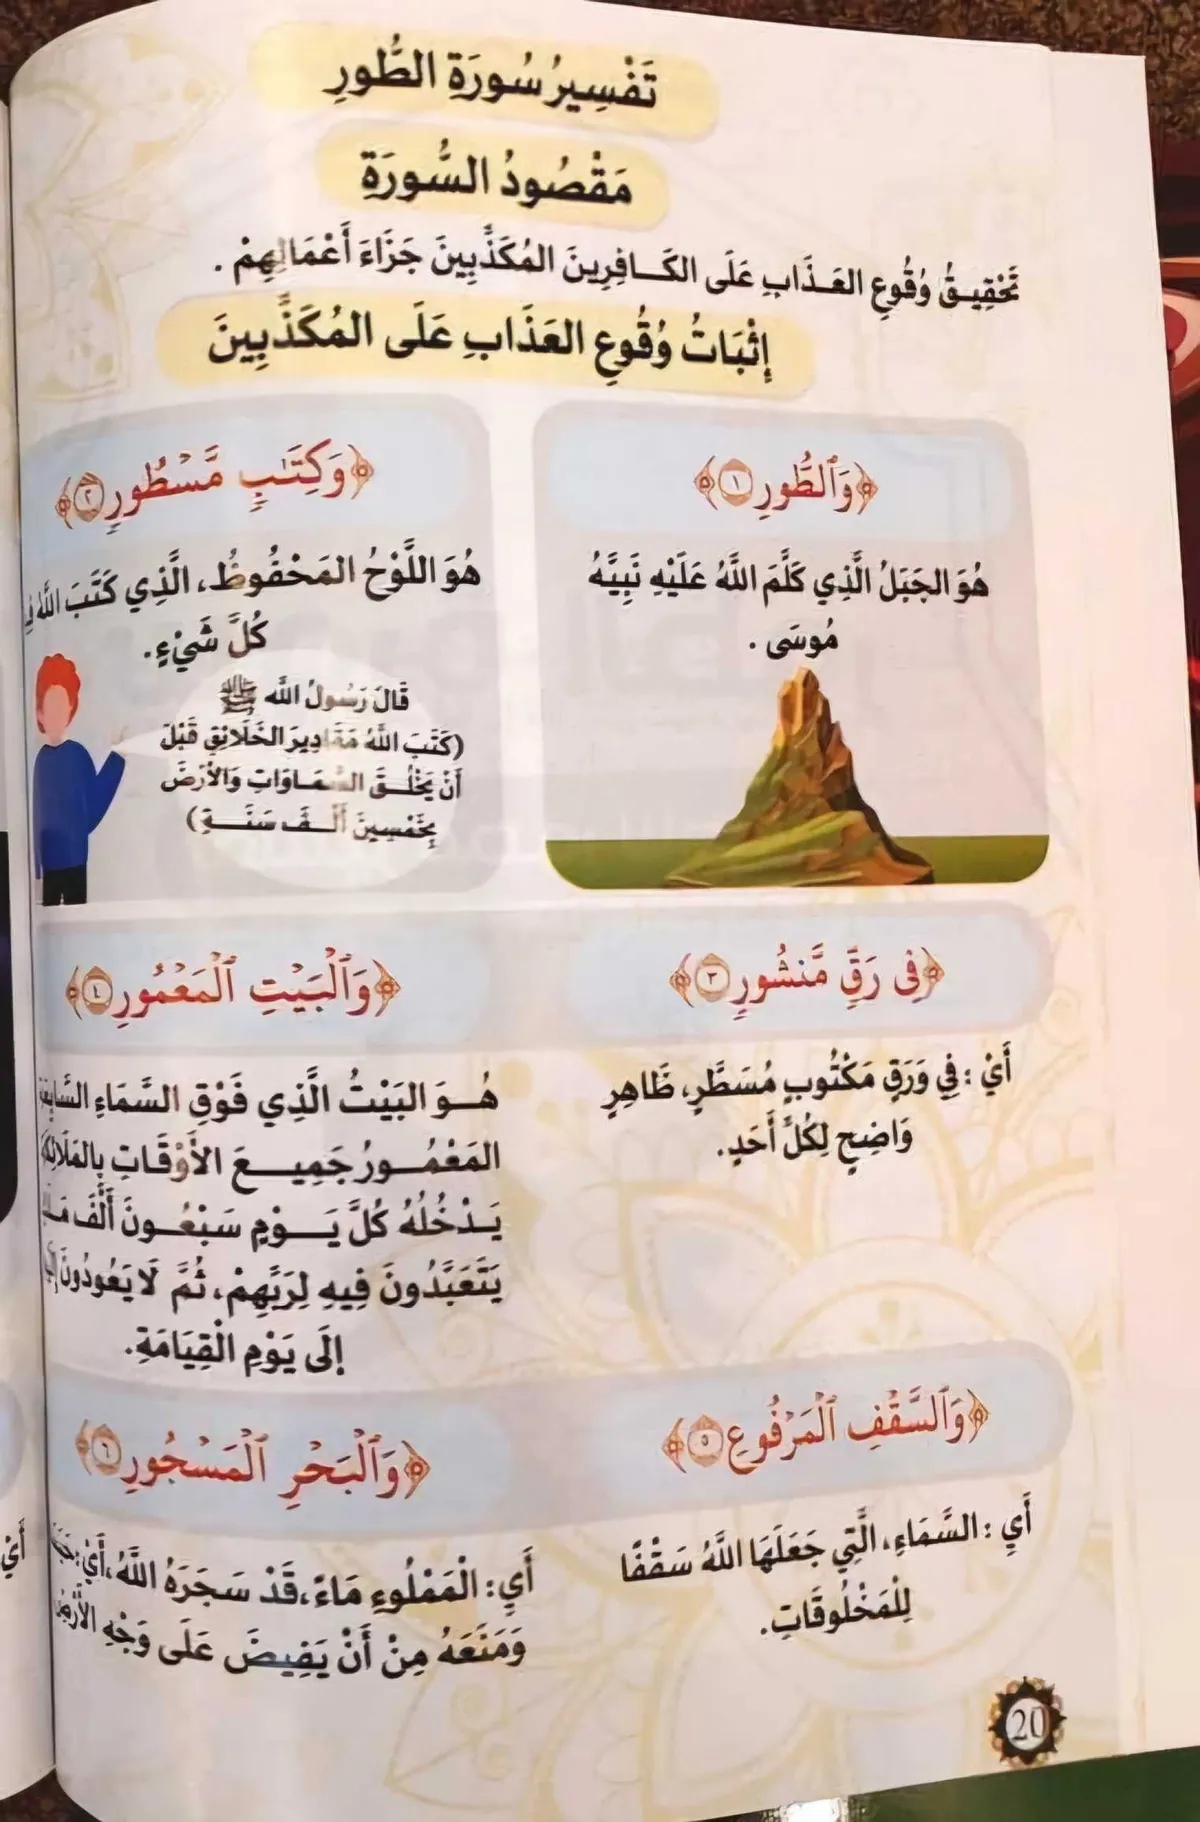 تَفْسِيرُ سُورَةِ الطُّورِ
مَقْصُودُ السُّورَةِ
تَحْقِيقُ وُقُوعِ العَذَابِ عَلَى الكَافِرِينَ المُكَذِّبِينَ جَزَاءَ أَعْمَالِهِمْ .
إِثْبَاتُ وُقُوعِ العَذَابِ عَلَى المُكَذِّبِينَ
﴿وَٱلطُّورِ ١﴾
هُوَ الجَبَلُ الَّذِي كَلَّمَ اللَّهُ عَلَيْهِ نَبِيَّهُ
مُوسَى .
﴿وَكِتَٰبٖ مَّسۡطُورٖ ٢﴾
هُوَ اللَّوْحُ المَحْفُوظُ، الَّذِي كَتَبَ اللَّهُ
كُلَّ شَيْءٍ.
قَالَ رَسُولُ اللَّه ﷺ
(كَتَبَ اللَّهُ مَقَادِيرَ الخَلَائِقِ قَبْلَ
أَنْ يَخْلُقَ السَّمَاوَاتِ وَالأَرْضَ
بِخَمْسِينَ أَلْفَ سَنَةٍ)
﴿فِي رَقّٖ مَّنشُورٖ ٣﴾
أَيْ : فِي وَرَقٍ مَكْتُوبٍ مُسَطَّرٍ، ظَاهِرٍ
وَاضِحٍ لِكُلِّ أَحَدٍ.
﴿وَٱلۡبَيۡتِ ٱلۡمَعۡمُورِ ٤﴾
هُوَ البَيْتُ الَّذِي فَوْقِ السَّمَاءِ
المَعْمُورُ جَمِيعَ الأَوْقَاتِ
يَدْخُلُهُ كُلَّ يَوْمٍ سَبْعُونَ أَلْفَ
يَتَعَبَّدُونَ فِيهِ لِرَبِّهِمْ، ثُمَّ لَا يَعُودُونَ
إِلَى يَوْمِ الْقِيَامَةِ.
﴿وَٱلسَّقۡفِ ٱلۡمَرۡفُوعِ ٥﴾
أَيِ : السَّمَاءِ، الَّتِي جَعَلَهَا اللَّهُ سَقْفًا
لِلْمَخْلُوقَاتِ.
﴿وَٱلۡبَحۡرِ ٱلۡمَسۡجُورِ ٦﴾
أَيِ: الْمَمْلُوءِ مَاءً، قَدْ سَجَرَهُ اللَّهُ، أَيْ:
وَمَنَعَهُ مِنْ أَنْ يَفِيضَ عَلَى وَجْهِ الأَرْضِ
20
أَيْ